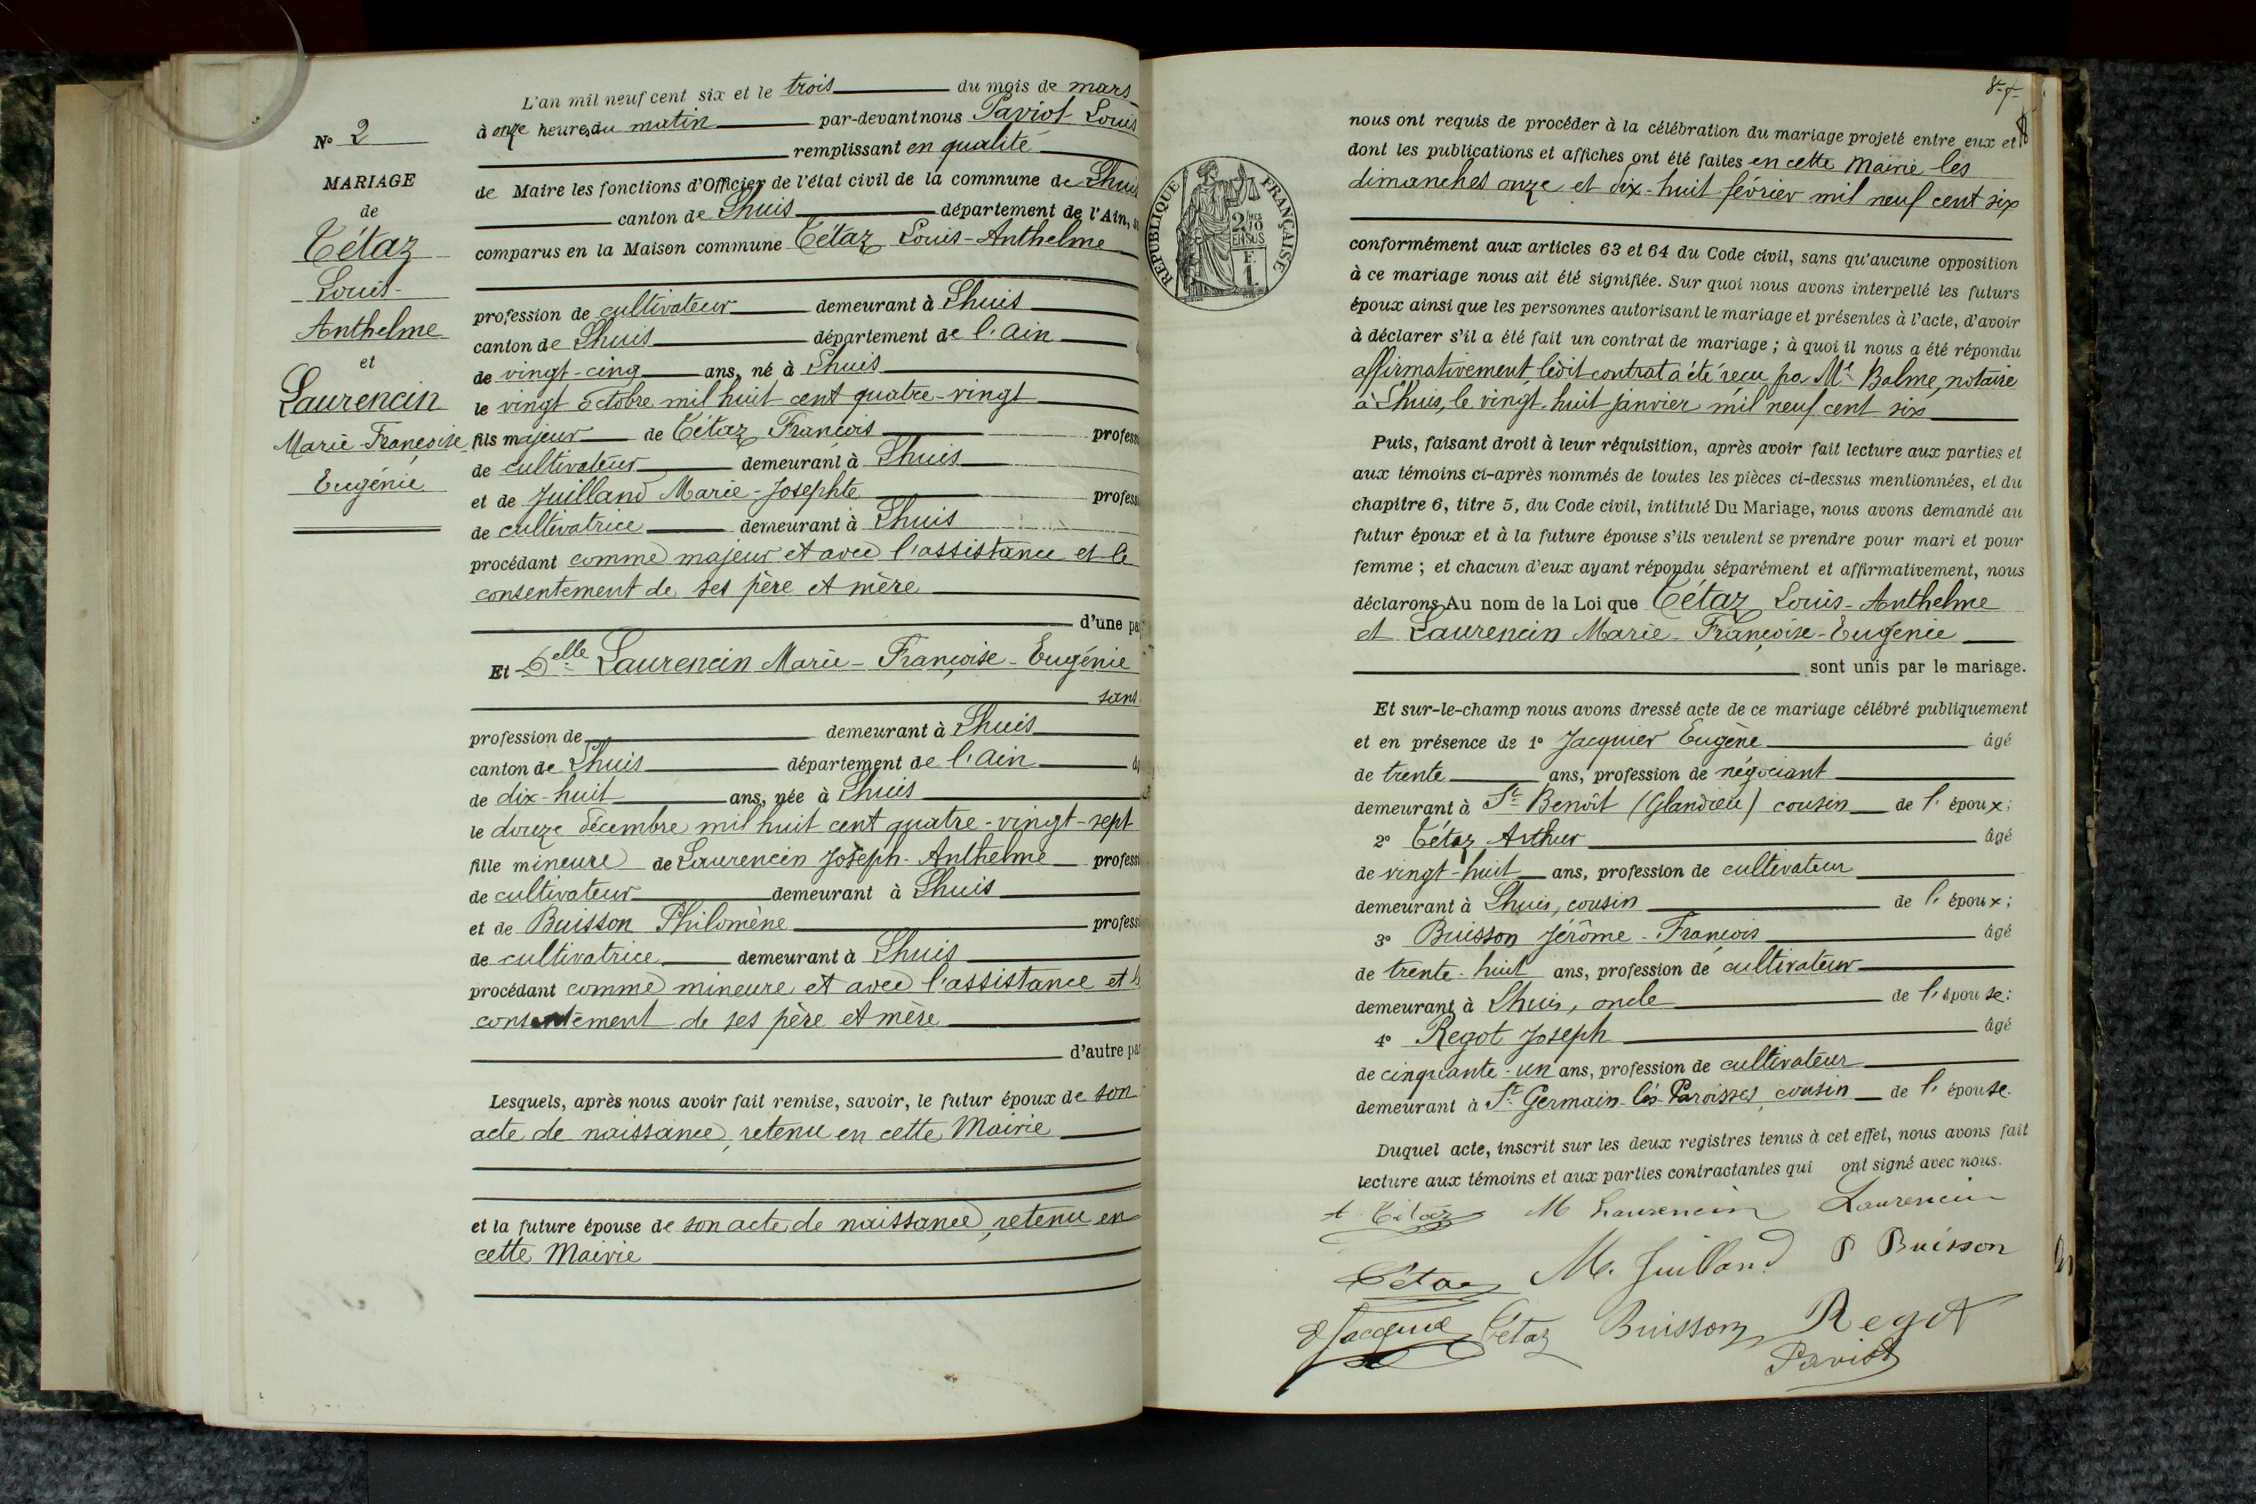 N° 2
MARIAGE
de
Tétaz
Louis-
Anthelme
et
Laurencin
Marie-Françoise
Eugénie
L'an mil neuf cent six et le trois du mois de mars
à onze heures du matin par-devant nous Paviot Louis
remplissant en qualité
de Maire les fonctions d'Officier de l'état civil de la commune de Lhuis
canton de Lhuis département de l'Ain,
comparus en la Maison commune Tétaz Louis-Anthelme
profession de cultivateur demeurant à Lhuis
canton de Lhuis département de l'Ain
de vingt-cinq ans, né à Lhuis
le vingt octobre mil huit cent quatre-vingt
fils majeur de Tétaz François profess
de cultivateur demeurant à Lhuis
et de Juilland Marie-Josephte profess
de cultivatrice demeurant à Lhuis
procédant comme majeur et avec l'assistance et le
consentement de ses père et mère
d'une pa
Et Delle Laurencin Marie-Françoise-Eugénie
sans
profession de demeurant à Lhuis
canton de Lhuis département de l'Ain
de dix-huit ans, née à Lhuis
le douze décembre mil huit cent quatre-vingt-sept
fille mineure de Laurencin Joseph-Anthelme profess
de cultivateur demeurant à Lhuis
et de Buisson Philomène profess
de cultivatrice demeurant à Lhuis
procédant comme mineure et avec l'assistance et le
consentement de ses père et mère
d'autre pa
Lesquels, après nous avoir fait remise, savoir, le futur époux de son
acte de naissance, retenu en cette Mairie
et la future épouse de son acte de naissance, retenu en
cette Mairie
RÉPUBLIQUE FRANÇAISE
2/10
EN SUS
F.
1
nous ont requis de procéder à la célébration du mariage projeté entre eux et
dont les publications et affiches ont été faites en cette Mairie les
dimanches onze et dix-huit février mil neuf cent six
conformément aux articles 63 et 64 du Code civil, sans qu'aucune opposition
à ce mariage nous ait été signifiée. Sur quoi nous avons interpellé les futurs
époux ainsi que les personnes autorisant le mariage et présentes à l'acte, d'avoir
à déclarer s'il a été fait un contrat de mariage ; à quoi il nous a été répondu
affirmativement, ledit contrat a été reçu pa Me Balme, notaire
à Lhuis, le vingt-huit janvier mil neuf cent six
Puis, faisant droit à leur réquisition, après avoir fait lecture aux parties et
aux témoins ci-après nommés de toutes les pièces ci-dessus mentionnées, et du
chapitre 6, titre 5, du Code civil, intitulé Du Mariage, nous avons demandé au
futur époux et à la future épouse s'ils veulent se prendre pour mari et pour
femme ; et chacun d'eux ayant répondu séparément et affirmativement, nous
déclarons Au nom de la Loi que Tétaz Louis-Anthelme
et Laurencin Marie-Françoise-Eugénie
sont unis par le mariage.
Et sur-le-champ nous avons dressé acte de ce mariage célébré publiquement
et en présence de 1° Jacquier Eugène âgé
de trente ans, profession de négociant
demeurant à St Benoît (Glandieu) cousin de l'époux;
2° Tétaz Arthur âgé
de vingt-huit ans, profession de cultivateur
demeurant à Lhuis, cousin de l'époux;
3° Buisson Jérôme-François âgé
de trente-huit ans, profession de cultivateur
demeurant à Lhuis, oncle de l'épouse:
4° Regot Joseph âgé
de cinquante-un ans, profession de cultivateur
demeurant à St Germain-les-Paroisses, cousin de l'épouse.
Duquel acte, inscrit sur les deux registres tenus à cet effet, nous avons fait
lecture aux témoins et aux parties contractantes qui ont signé avec nous.
A. Tétaz M Laurencin Laurencin
Tétaz M. Juilland P Buisson
E Jacquie Tétaz Buisson Regot
Paviot